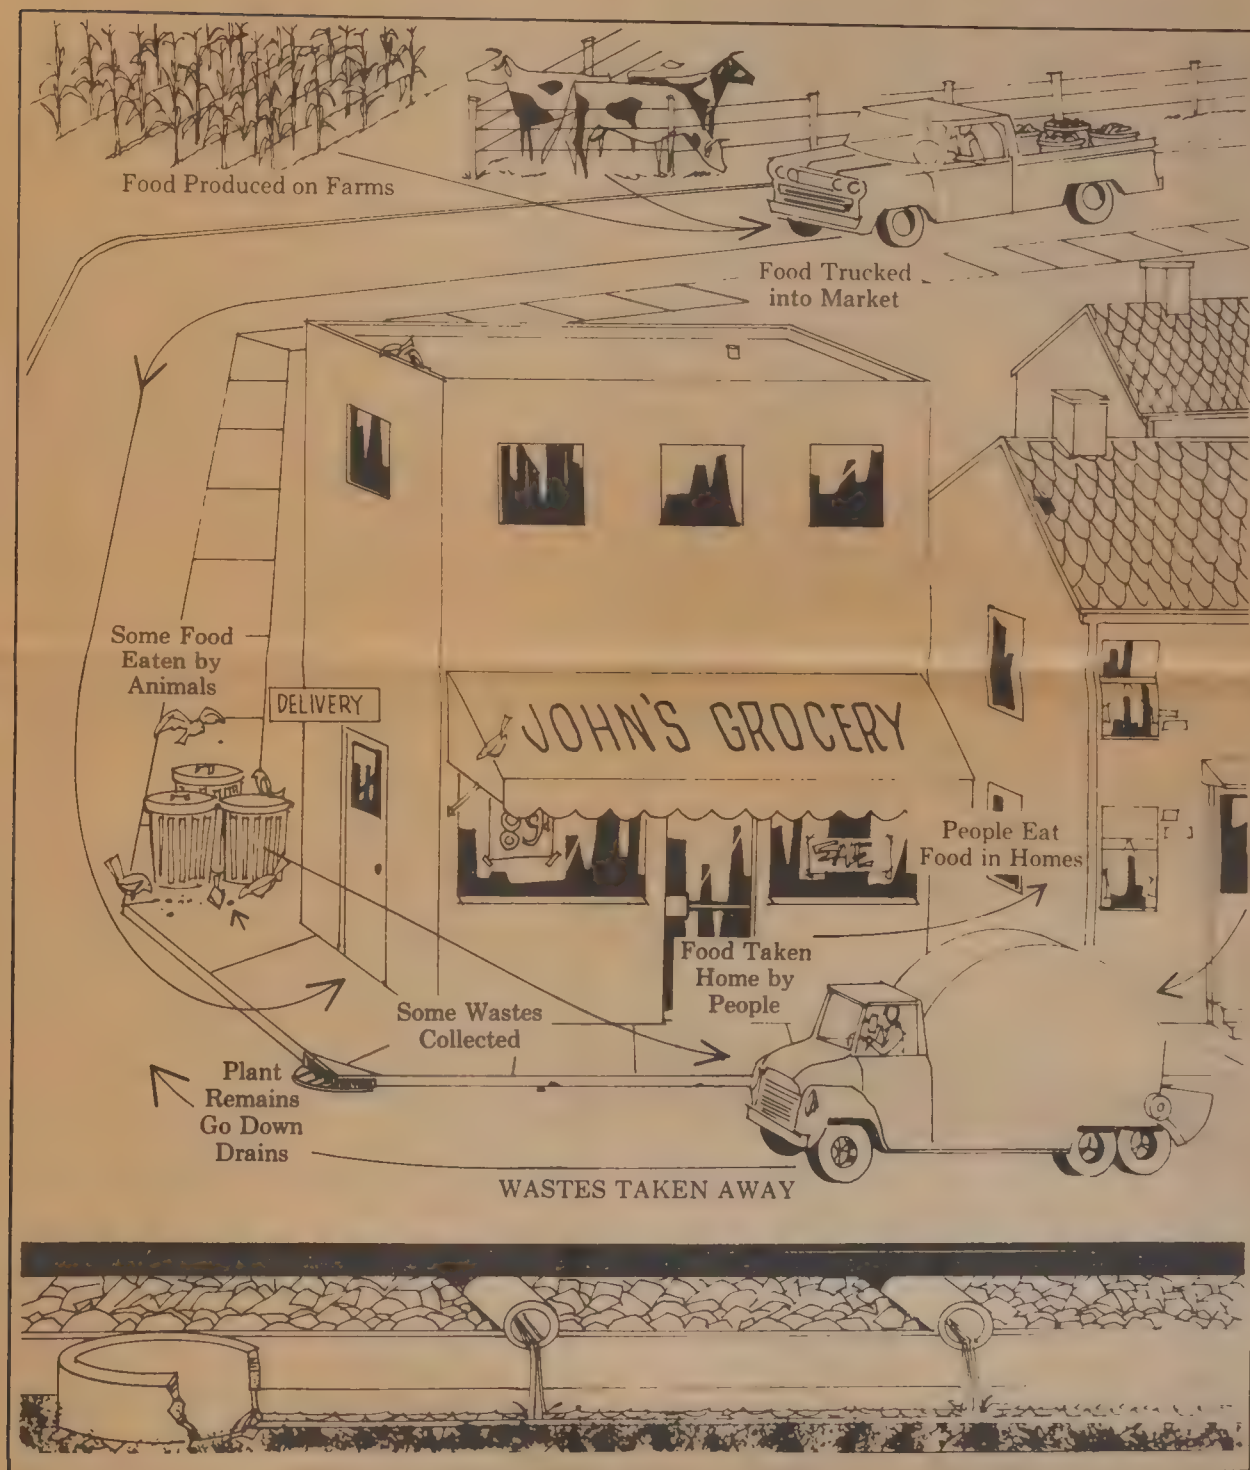 Food Produced on Farms
Food Trucked
into Market
Some Food
Eaten by
Animals
DELIVERY
JOHN'S GROCERY
People Eat
Food in Homes
Food Taken
Home by
People
Some Wastes
Collected
Plant
Remains
Go Down
Drains
WASTES TAKEN AWAY